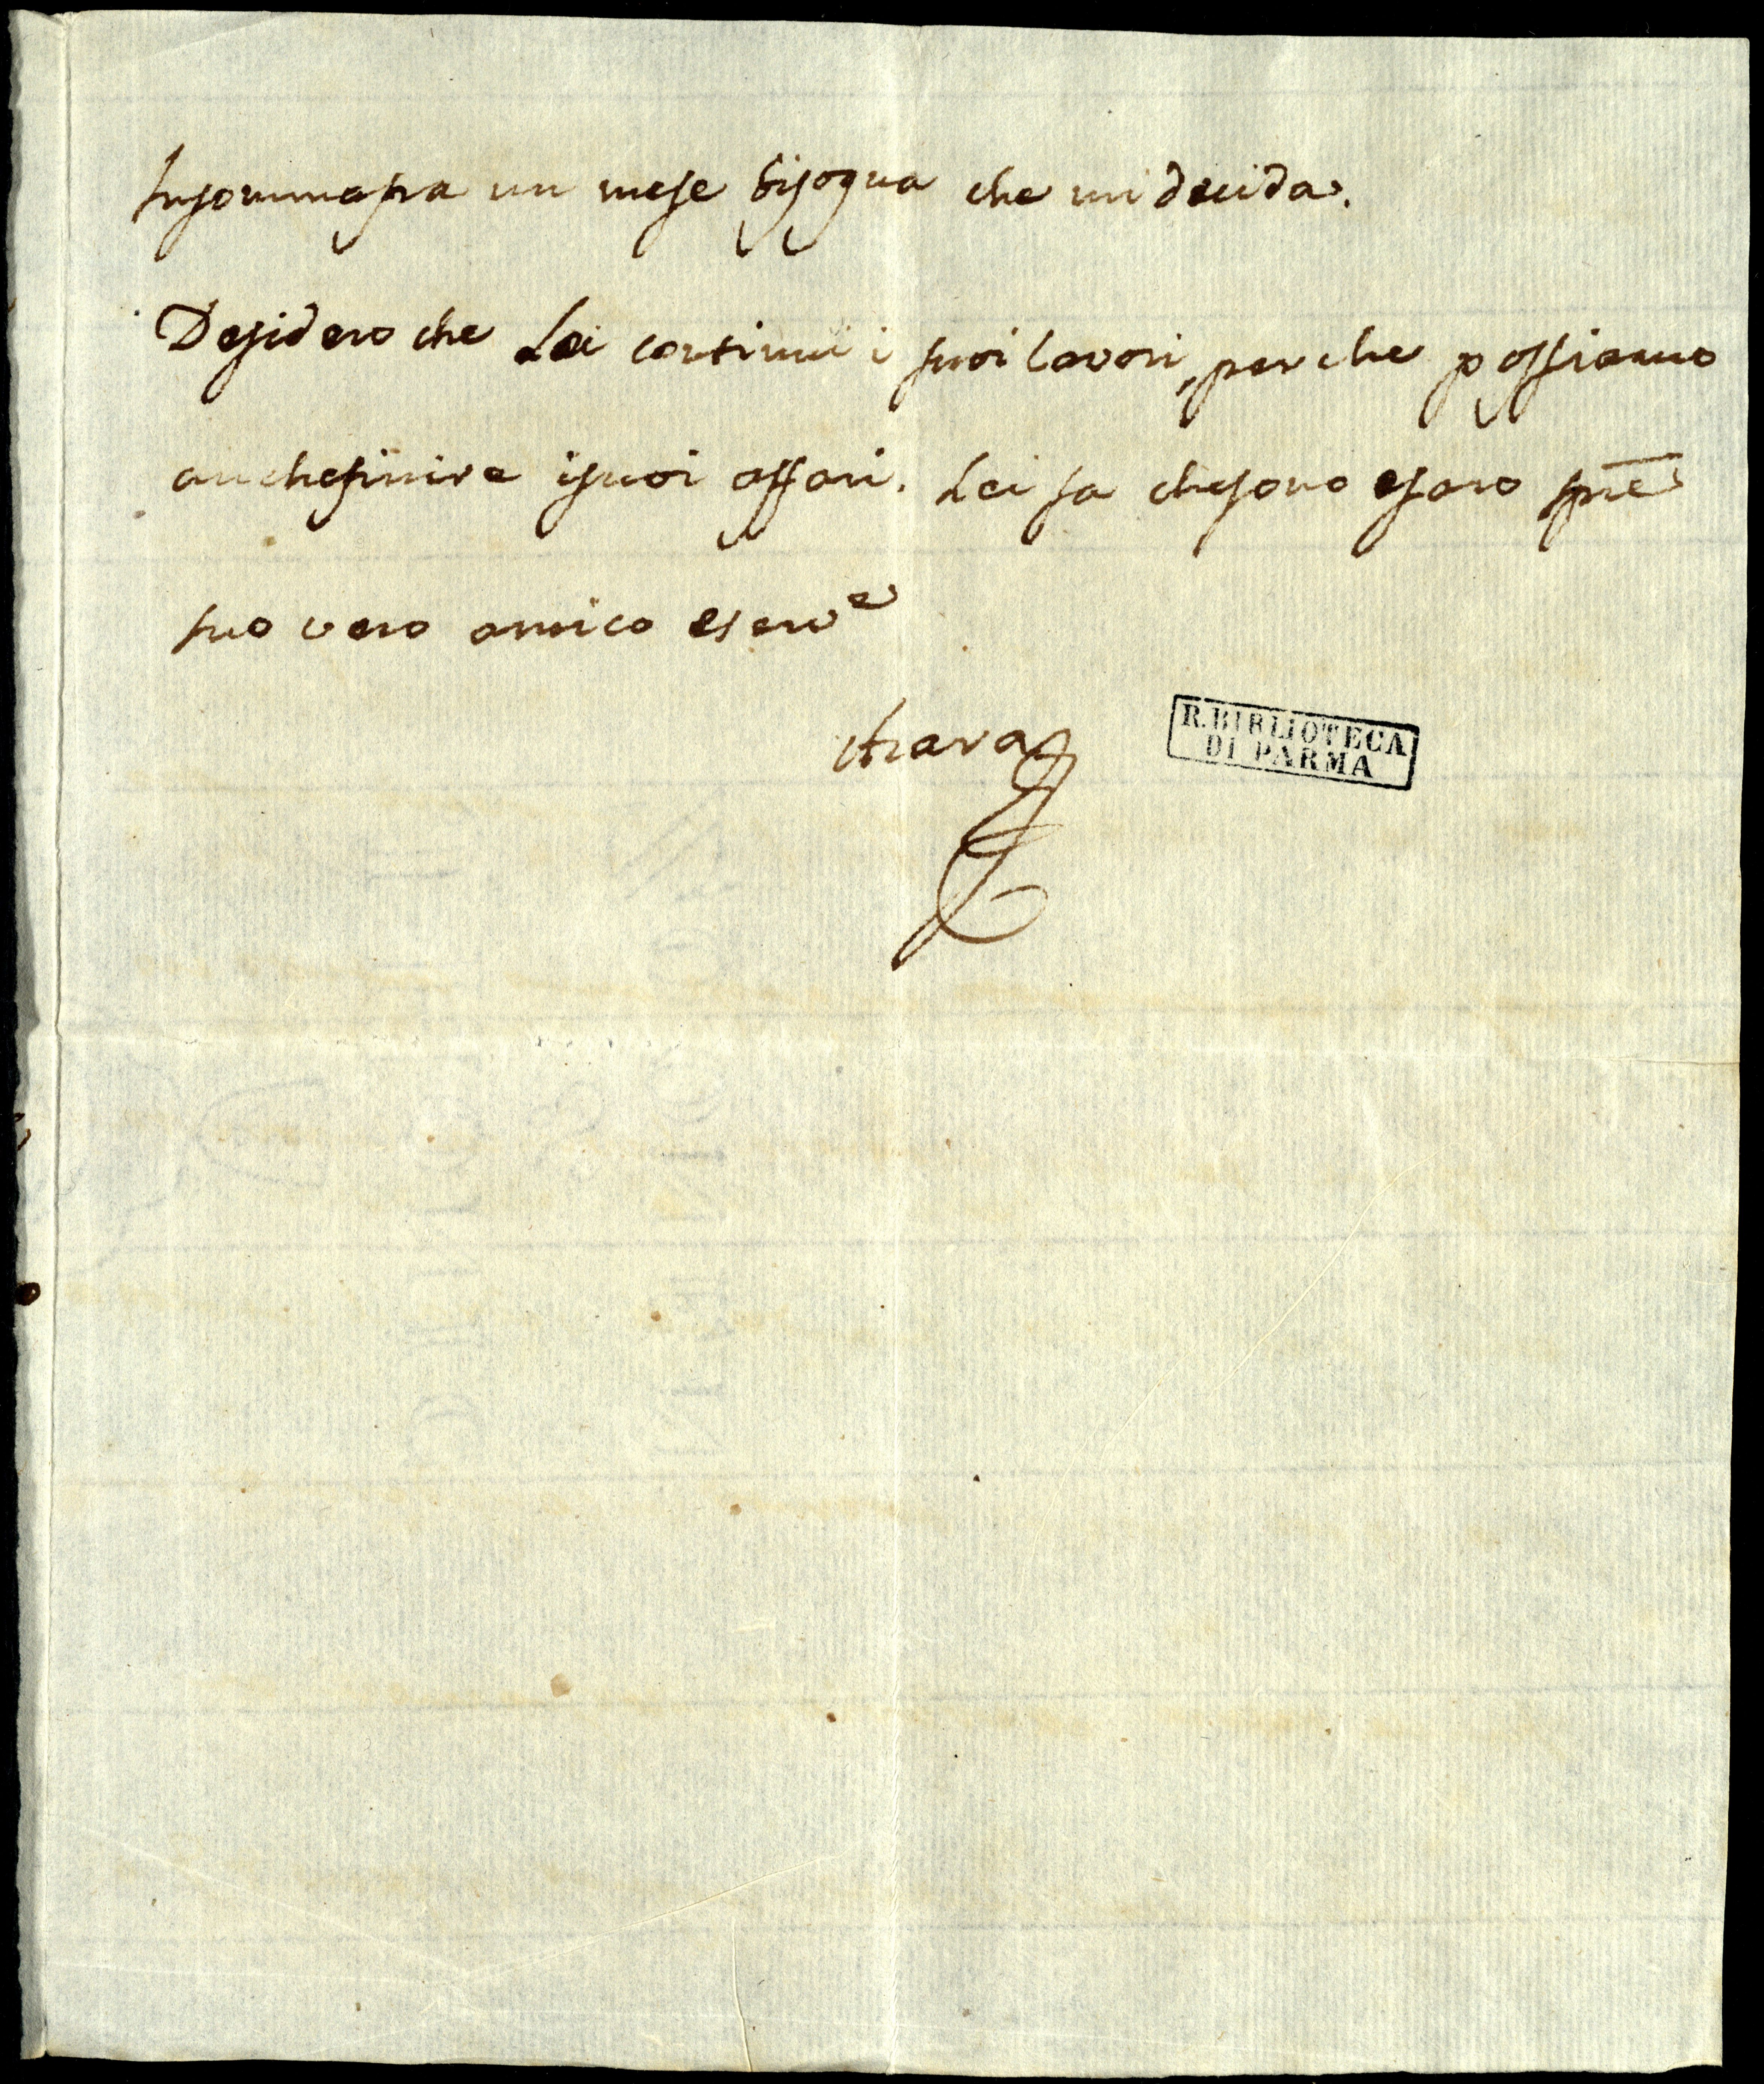 Insomma fra un mese bisogna che mi decida.
Desidero che Lei continui i suoi lavori, perche possiamo
anche finire i suoi affari. Lei sa che sono e saro spre
suo vero amico e serv.e
Azara
R. BIBLIOTECA
DI PARMA